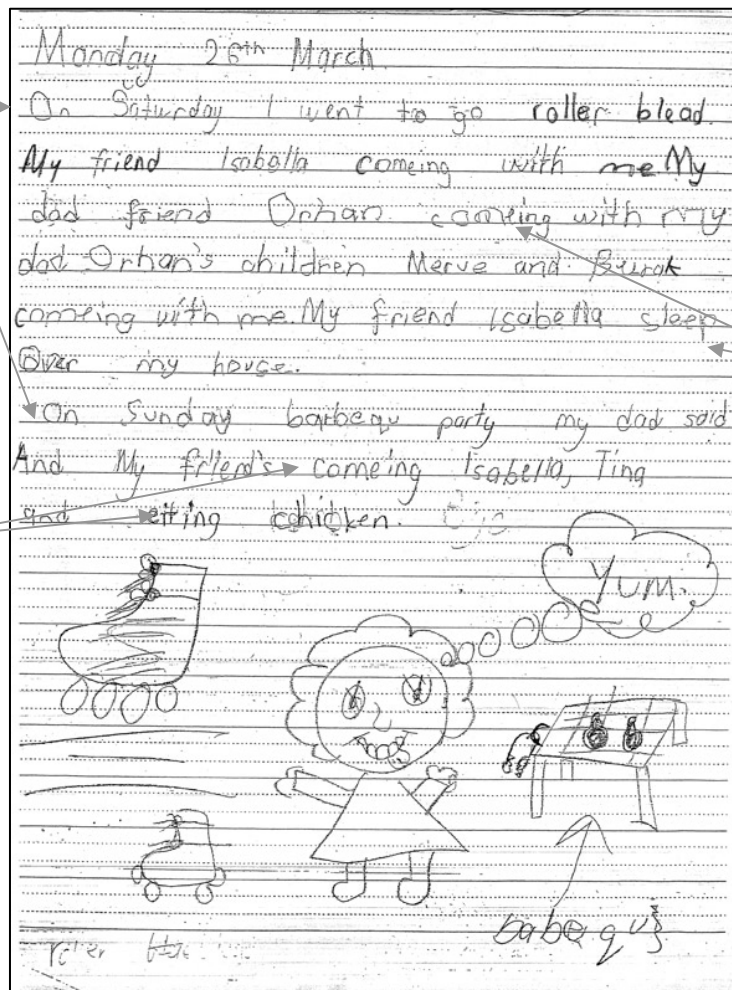 Monday 26th March
On Saturday I went to go roller blead.
My friend Isabella comeing with me My
dad friend Orhan comeing with my
dad Orhan's children Merve and Burak
comeing with me. My friend Isabella sleep
Over my house.
On Sunday barbequ party my dad said
And My friend's comeing Isabella, Tina
and eitting chicken.
Yum.
babequ